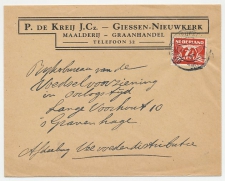 P. DE KREIJ J.Cz. - GIESSEN-NIEUWKERK
MAALDERIJ - GRAANHANDEL
TELEFOON 12
NEDERLAND
Rijksbureau van de
Voedselvoorziening
in oorlogstijd
Lange Voorhout 10
's Gravenhage
Afdeling Veevoederdistributie